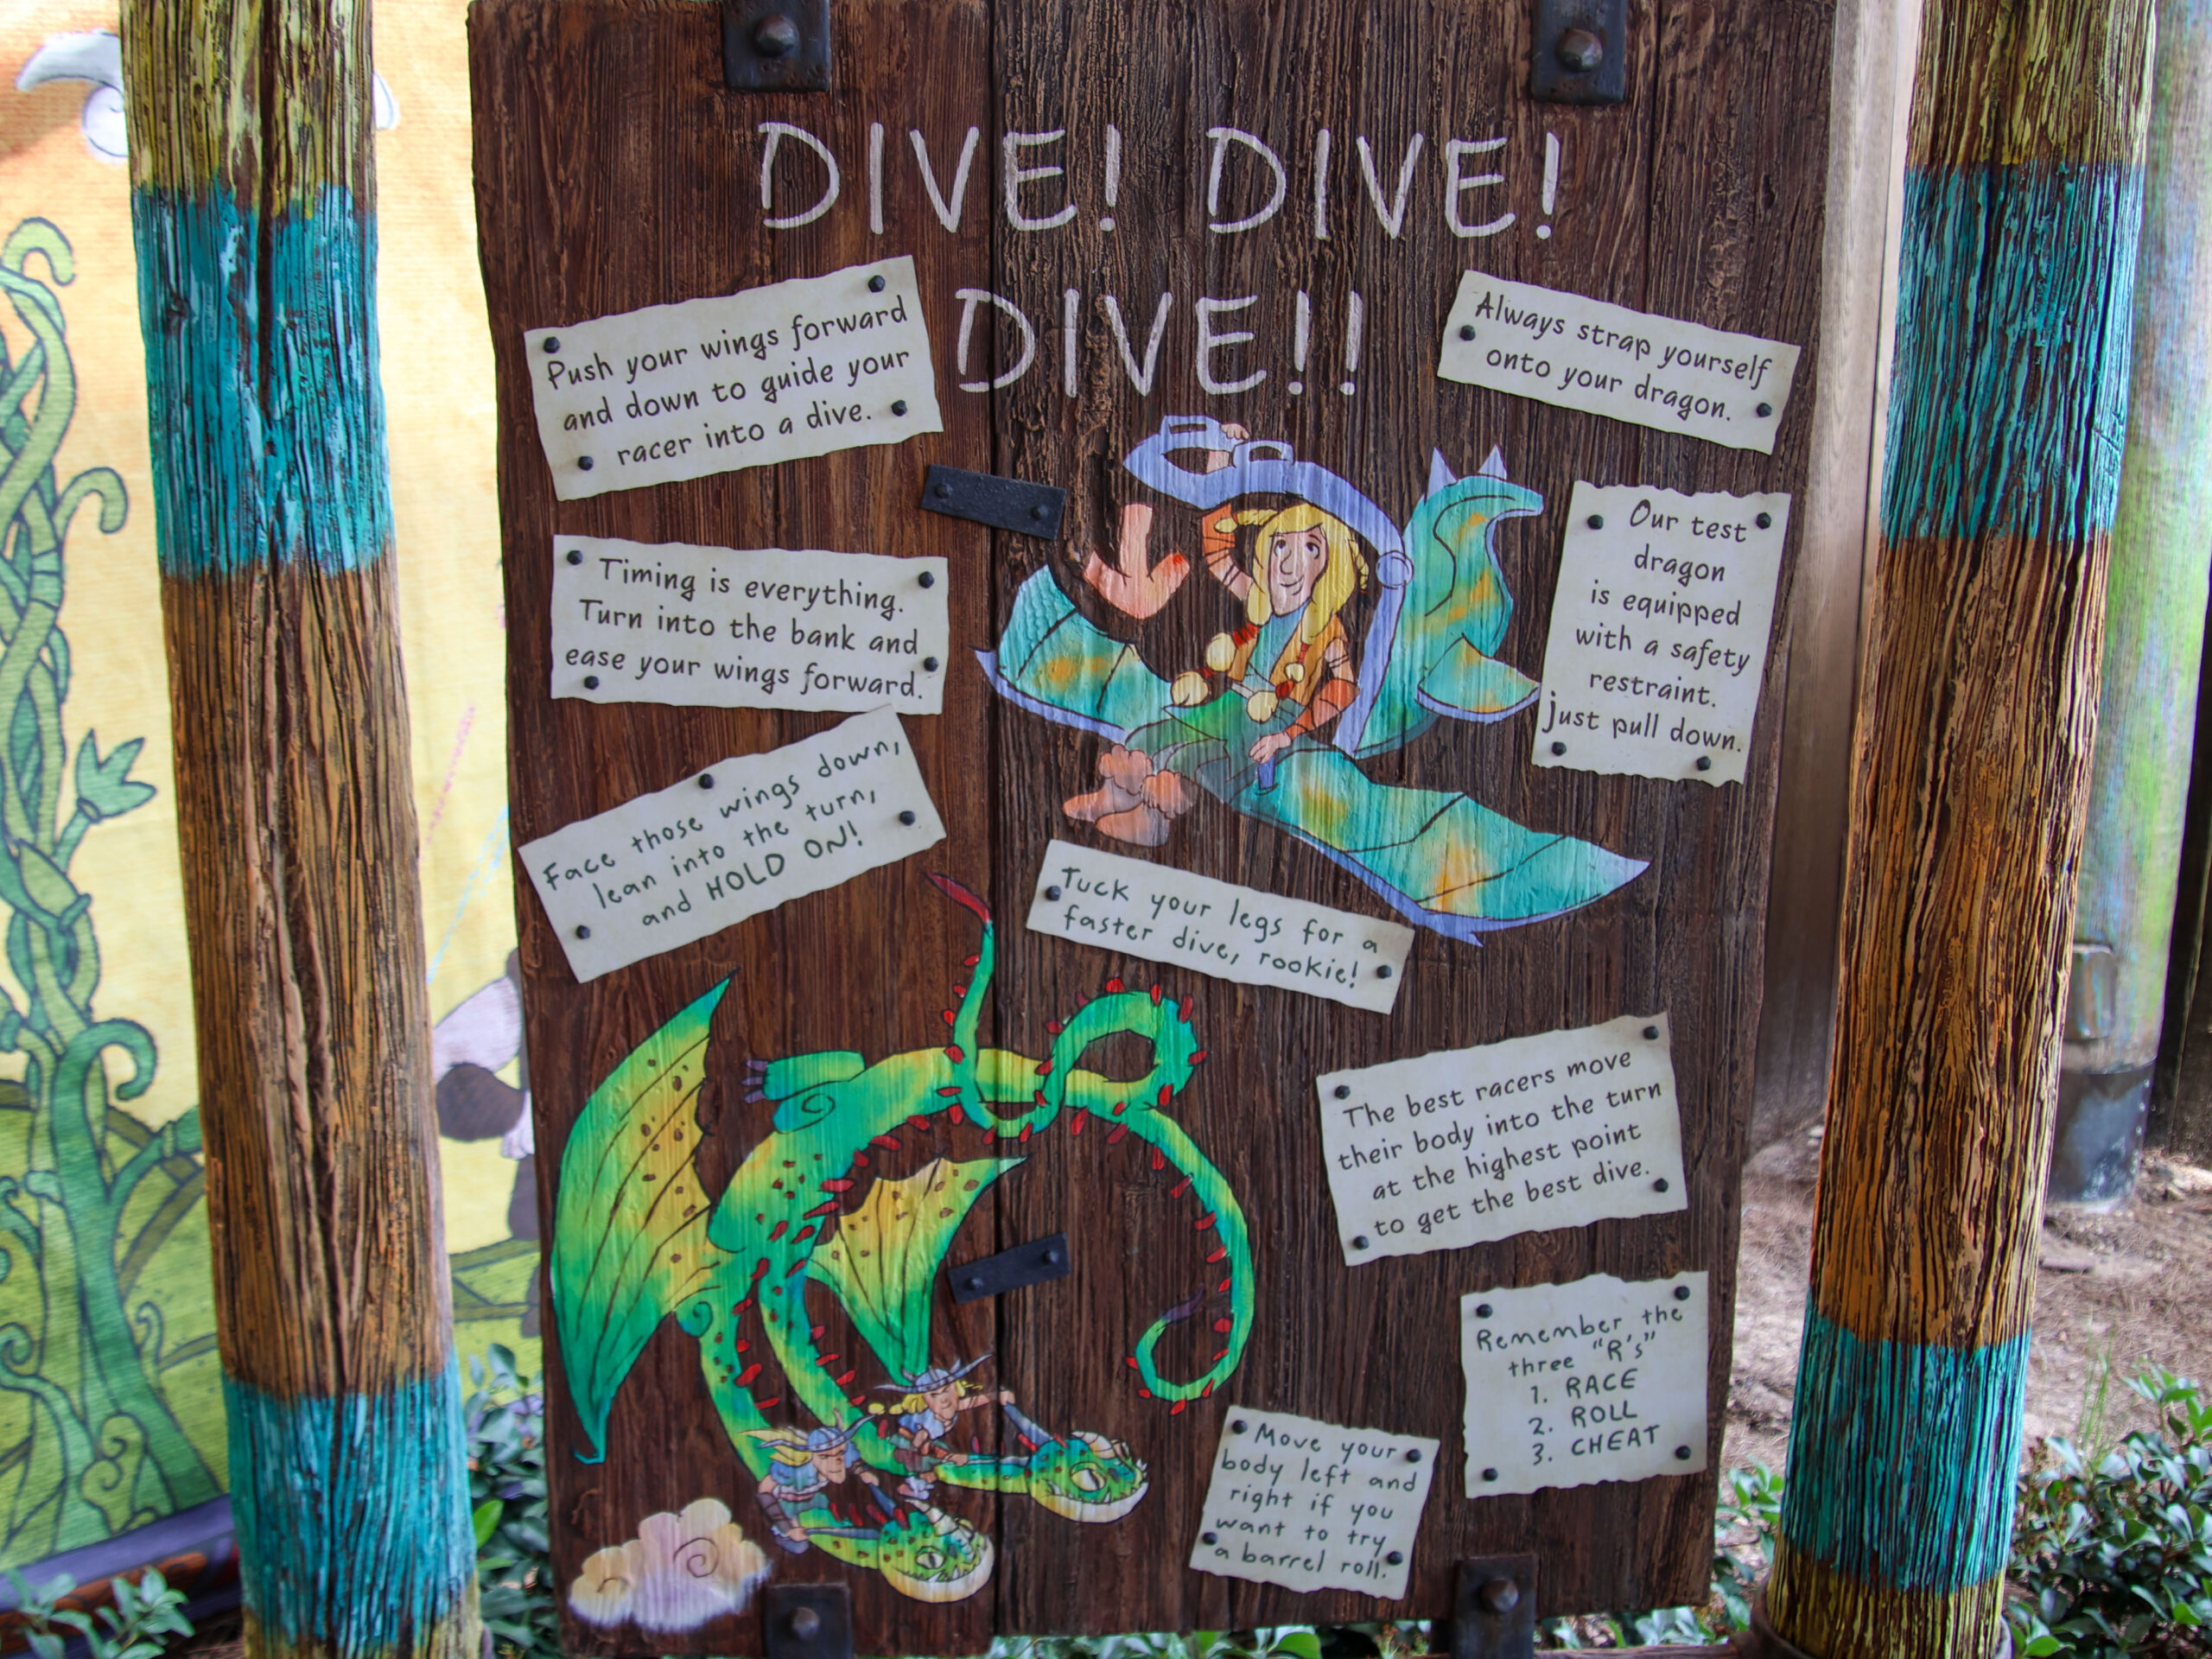 DIVE! DIVE!
DIVE!!
Push your wings forward
and down to guide your
racer into a dive.
Always strap yourself
onto your dragon.
Timing is everything.
Turn into the bank and
ease your wings forward.
Our test
dragon
is equipped
with a safety
restraint.
Just pull down.
Face those wings down,
lean into the turn,
and HOLD ON!
Tuck your legs for a
faster dive, rookie!
The best racers move
their body into the turn
at the highest point
to get the best dive.
Remember the
three "R's"
1. RACE
2. ROLL
3. CHEAT
Move your
body left and
right if you
want to try
a barrel roll.